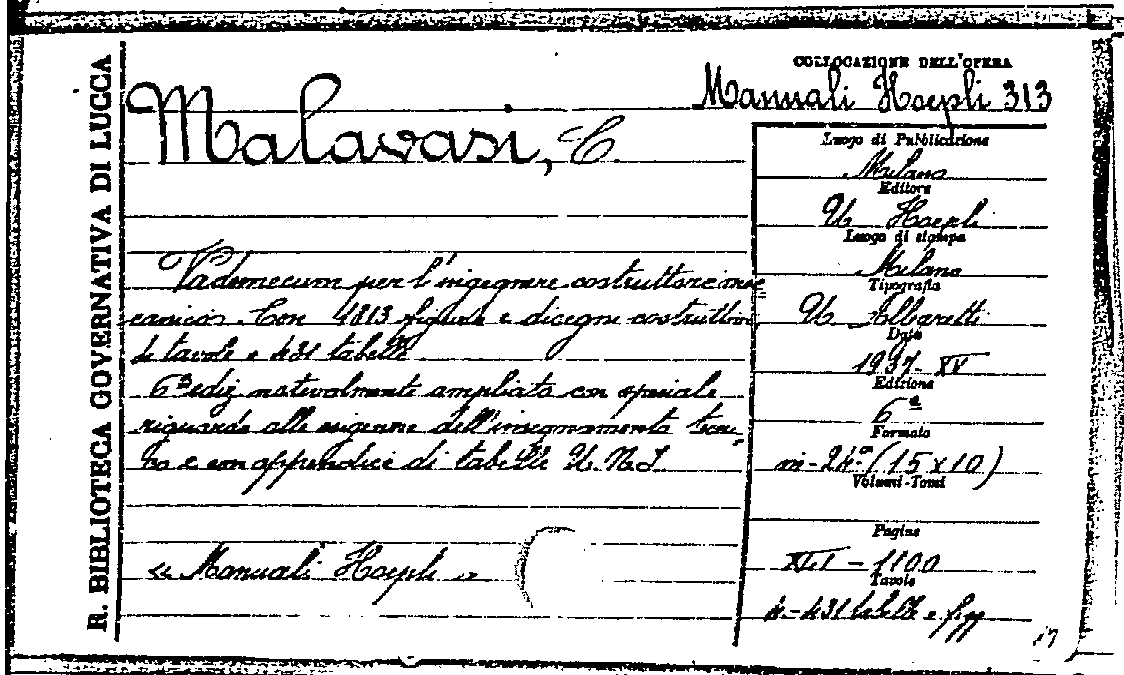 R. BIBLIOTECA GOVERNATIVA DI LUCCA
COLLOCAZIONE DELL'OPERA
Manuali Hoepli 313
Malavasi, C.
Vademecum per l'ingegnere costruttore mec
canico. Con 4813 figure e disegni costruttivi,
4 tavole e 431 tabelle
6ª ediz notevolmente ampliata con speciale
riguardo alle esigenze dell'insegnamento tecni-
co e con appendici di tabelle U.N.I.
« Manuali Hoepli »
Luogo di Pubblicazione
Milano
Editore
U Hoepli
Luogo di stampa
Milano
Tipografia
U Allaretti
Data
1937-XV
Edizione
6ª
Formato
in-24º (15x10)
Volumi-Tomi
Pagine
XLI - 1100
Tavole
4-431 tabelle e figg
17